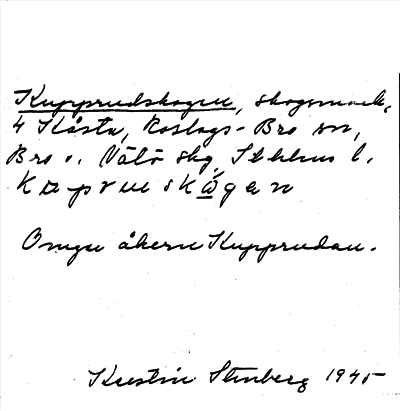 Kupprudskogen, skogsmark,
4 Kåsta, Roslags-Bro sn,
Bro o. Vätö skg, Sthlms l.
Omgu åkern Kupprudan.
Kerstin Stenberg 1945